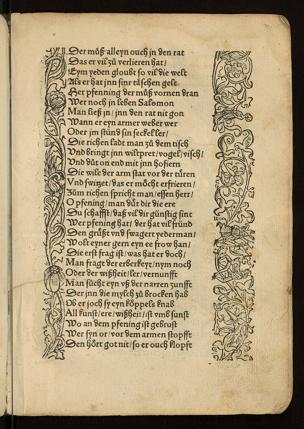 Der můß alleyn ouch jn den rat
Das er vil zů verlieren hat/
Eym yeden gloubt so vil die welt
Als er hat jnn sinr täschen gelt
Her pfenning der můß vornen dran
Wer noch jn leben Salomon
Man ließ jn/ jnn den rat nit gon
Wann er eyn armer weber wer
Oder jm stünd sin seckel ler/
Die richen ladt man zů dem tisch
Und bringt jnn wiltpret/ vogel/ visch/
Und důt on end mit jnn hofiern
Die wile der arm stat vor der türen
Und switzt/ das er möcht erfrieren/
Zům richen spricht man/ essen herr/
O pfening/ man důt dir die ere
Du schaffst/ das vil dir günstig sint
Wer pfening hat/ der hat vil fründ
Den grüßt vnd swagert yederman/
Wolt eyner gern eyn ee frow han/
Die erst frag ist/ was hat er doch/
Man fragt der erberkeyt/ nym noch
Oder der wißheit/ ler/ vernunfft
Man sůcht eyn vß der narren zunfft
Der jnn die mylch zů brocken hab
Ob er joch sy eyn köppels knab
All kunst/ ere/ wißheit/ ist vmb sunst
Wo an dem pfening ist gebrust
Wer syn or/ vor dem armen stopfft
Den hört got nit/ so er ouch klopfft